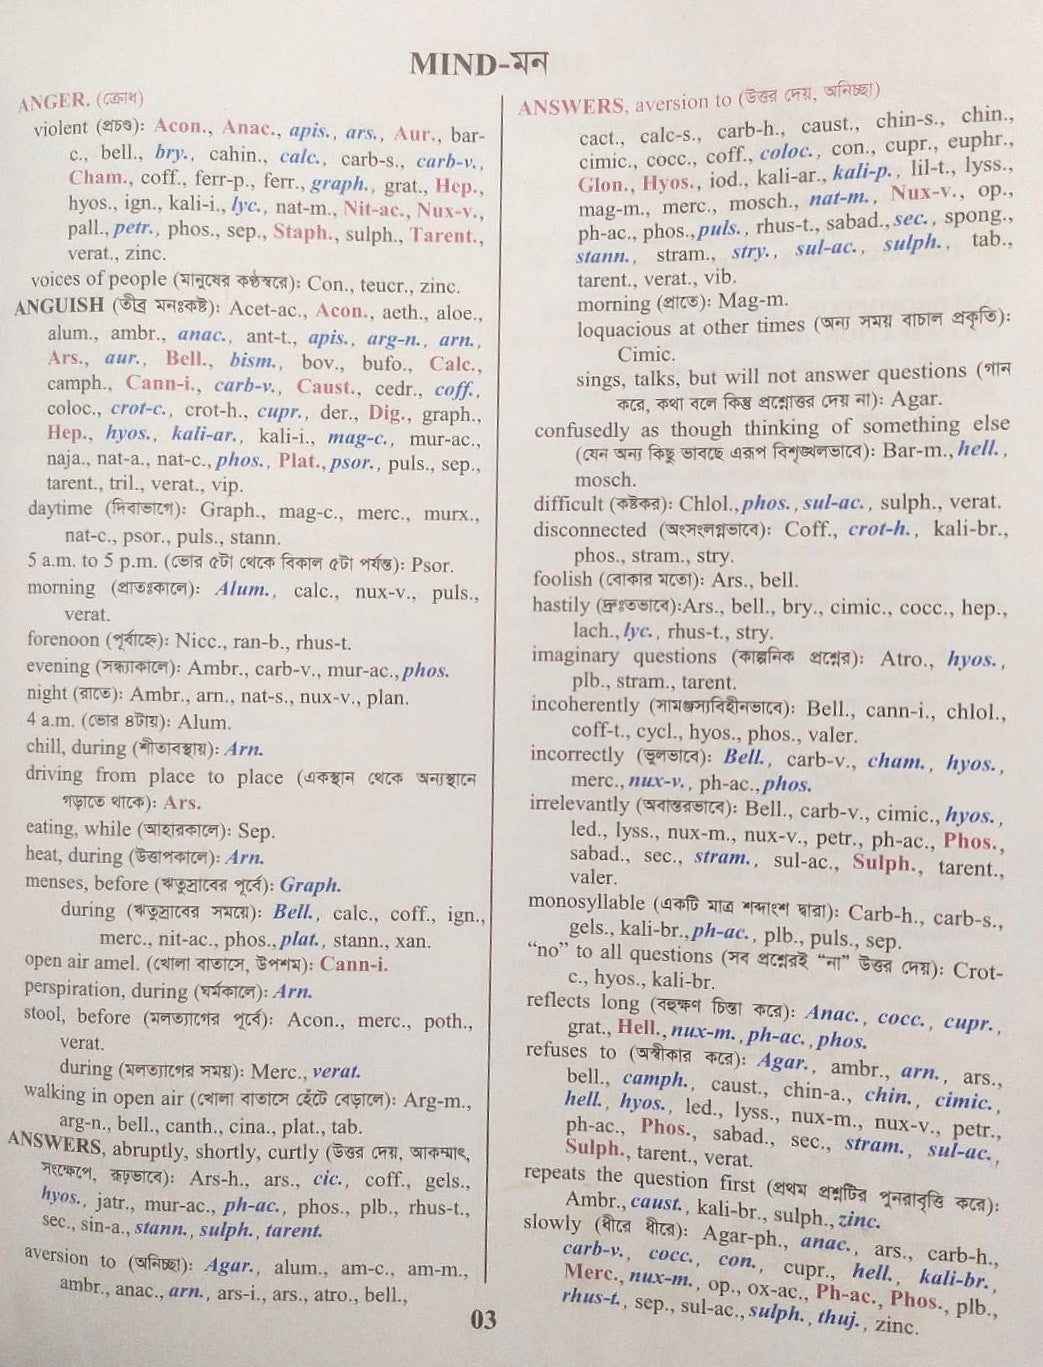 MIND-মন
ANGER. (ক্রোধ)
violent (প্রচণ্ড): Acon., Anac., apis., ars., Aur., bar-
c., bell., bry., cahin., calc., carb-s., carb-v.,
Cham., coff., ferr-p., ferr., graph., grat., Hep.,
hyos., ign., kali-i., lyc., nat-m., Nit-ac., Nux-v.,
pall., petr., phos., sep., Staph., sulph., Tarent.,
verat., zinc.
voices of people (মানুষের কণ্ঠস্বরে): Con., teucr., zinc.
ANGUISH (তীব্র মনঃকষ্ট): Acet-ac., Acon., aeth., aloe.,
alum., ambr., anac., ant-t., apis., arg-n., arn.,
Ars., aur., Bell., bism., bov., bufo., Calc.,
camph., Cann-i., carb-v., Caust., cedr., coff.,
coloc., crot-c., crot-h., cupr., der., Dig., graph.,
Hep., hyos., kali-ar., kali-i., mag-c., mur-ac.,
naja., nat-a., nat-c., phos., Plat., psor., puls., sep.,
tarent., tril., verat., vip.
daytime (দিবাভাগে): Graph., mag-c., merc., murx.,
nat-c., psor., puls., stann.
5 a.m. to 5 p.m. (ভোর ৫টা থেকে বিকাল ৫টা পর্যন্ত): Psor.
morning (প্রাতঃকালে): Alum., calc., nux-v., puls.,
verat.
forenoon (পূর্বাহ্নে): Nicc., ran-b., rhus-t.
evening (সন্ধ্যাকালে): Ambr., carb-v., mur-ac., phos.
night (রাতে): Ambr., arn., nat-s., nux-v., plan.
4 a.m. (ভোর ৪টায়): Alum.
chill, during (শীতাবস্থায়): Arn.
driving from place to place (একস্থান থেকে অন্যস্থানে
গড়াতে থাকে): Ars.
eating, while (আহারকালে): Sep.
heat, during (উত্তাপকালে): Arn.
menses, before (ঋতুস্রাবের পূর্বে): Graph.
during (ঋতুস্রাবের সময়ে): Bell., calc., coff., ign.,
merc., nit-ac., phos., plat., stann., xan.
open air amel. (খোলা বাতাসে, উপশম): Cann-i.
perspiration, during (ঘর্মকালে): Arn.
stool, before (মলত্যাগের পূর্বে): Acon., merc., poth.,
verat.
during (মলত্যাগের সময়): Merc., verat.
walking in open air (খোলা বাতাসে হেঁটে বেড়ালে): Arg-m.,
arg-n., bell., canth., cina., plat., tab.
ANSWERS, abruptly, shortly, curtly (উত্তর দেয়, আকস্মাৎ,
সংক্ষেপে, রূঢ়ভাবে): Ars-h., ars., cic., coff., gels.,
hyos., jatr., mur-ac., ph-ac., phos., plb., rhus-t.,
sec., sin-a., stann., sulph., tarent.
aversion to (অনিচ্ছা): Agar., alum., am-c., am-m.,
ambr., anac., arn., ars-i., ars., atro., bell.,
ANSWERS, aversion to (উত্তর দেয়, অনিচ্ছা)
cact., calc-s., carb-h., caust., chin-s., chin.,
cimic., cocc., coff., coloc., con., cupr., euphr.,
Glon., Hyos., iod., kali-ar., kali-p., lil-t., lyss.,
mag-m., merc., mosch., nat-m., Nux-v., op.,
ph-ac., phos., puls., rhus-t., sabad., sec., spong.,
stann., stram., stry., sul-ac., sulph., tab.,
tarent., verat., vib.
morning (প্রাতে): Mag-m.
loquacious at other times (অন্য সময় বাচাল প্রকৃতি):
Cimic.
sings, talks, but will not answer questions (গান
করে, কথা বলে কিন্তু প্রশ্নোত্তর দেয় না): Agar.
confusedly as though thinking of something else
(যেন অন্য কিছু ভাবছে এরূপ বিশৃঙ্খলভাবে): Bar-m., hell.,
mosch.
difficult (কষ্টকর): Chlol., phos., sul-ac., sulph., verat.
disconnected (অংসংলগ্নভাবে): Coff., crot-h., kali-br.,
phos., stram., stry.
foolish (বোকার মতো): Ars., bell.
hastily (দ্রুঃতভাবে):Ars., bell., bry., cimic., cocc., hep.,
lach., lyc., rhus-t., stry.
imaginary questions (কাল্পনিক প্রশ্নের): Atro., hyos.,
plb., stram., tarent.
incoherently (সামঞ্জস্যবিহীনভাবে): Bell., cann-i., chlol.,
coff-t., cycl., hyos., phos., valer.
incorrectly (ভুলভাবে): Bell., carb-v., cham., hyos.,
merc., nux-v., ph-ac., phos.
irrelevantly (অবান্তরভাবে): Bell., carb-v., cimic., hyos.,
led., lyss., nux-m., nux-v., petr., ph-ac., Phos.,
sabad., sec., stram., sul-ac., Sulph., tarent.,
valer.
monosyllable (একটি মাত্র শব্দাংশ দ্বারা): Carb-h., carb-s.,
gels., kali-br., ph-ac., plb., puls., sep.
“no” to all questions (সব প্রশ্নেরই “না” উত্তর দেয়): Crot-
c., hyos., kali-br.
reflects long (বহুক্ষণ চিন্তা করে): Anac., cocc., cupr.,
grat., Hell., nux-m., ph-ac., phos.
refuses to (অস্বীকার করে): Agar., ambr., arn., ars.,
bell., camph., caust., chin-a., chin., cimic.,
hell., hyos., led., lyss., nux-m., nux-v., petr.,
ph-ac., Phos., sabad., sec., stram., sul-ac.,
Sulph., tarent., verat.
repeats the question first (প্রথম প্রশ্নটির পূনরাবৃত্তি করে):
Ambr., caust., kali-br., sulph., zinc.
slowly (ধীরে ধীরে): Agar-ph., anac., ars., carb-h.,
carb-v., cocc., con., cupr., hell., kali-br.,
Merc., nux-m., op., ox-ac., Ph-ac., Phos., plb.,
rhus-t., sep., sul-ac., sulph., thuj., zinc.
03